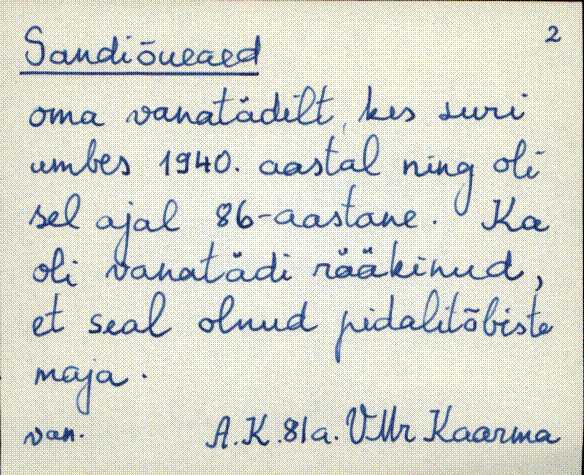 Sandiõueaed 2
oma vanatädilt, kes suri
umbes 1940. aastal ning oli
sel ajal 86-aastane. Ka
oli vanatädi rääkinud,
et seal olnud pidalitõbiste
maja.
van. A.K. 81a. VMr Kaarma